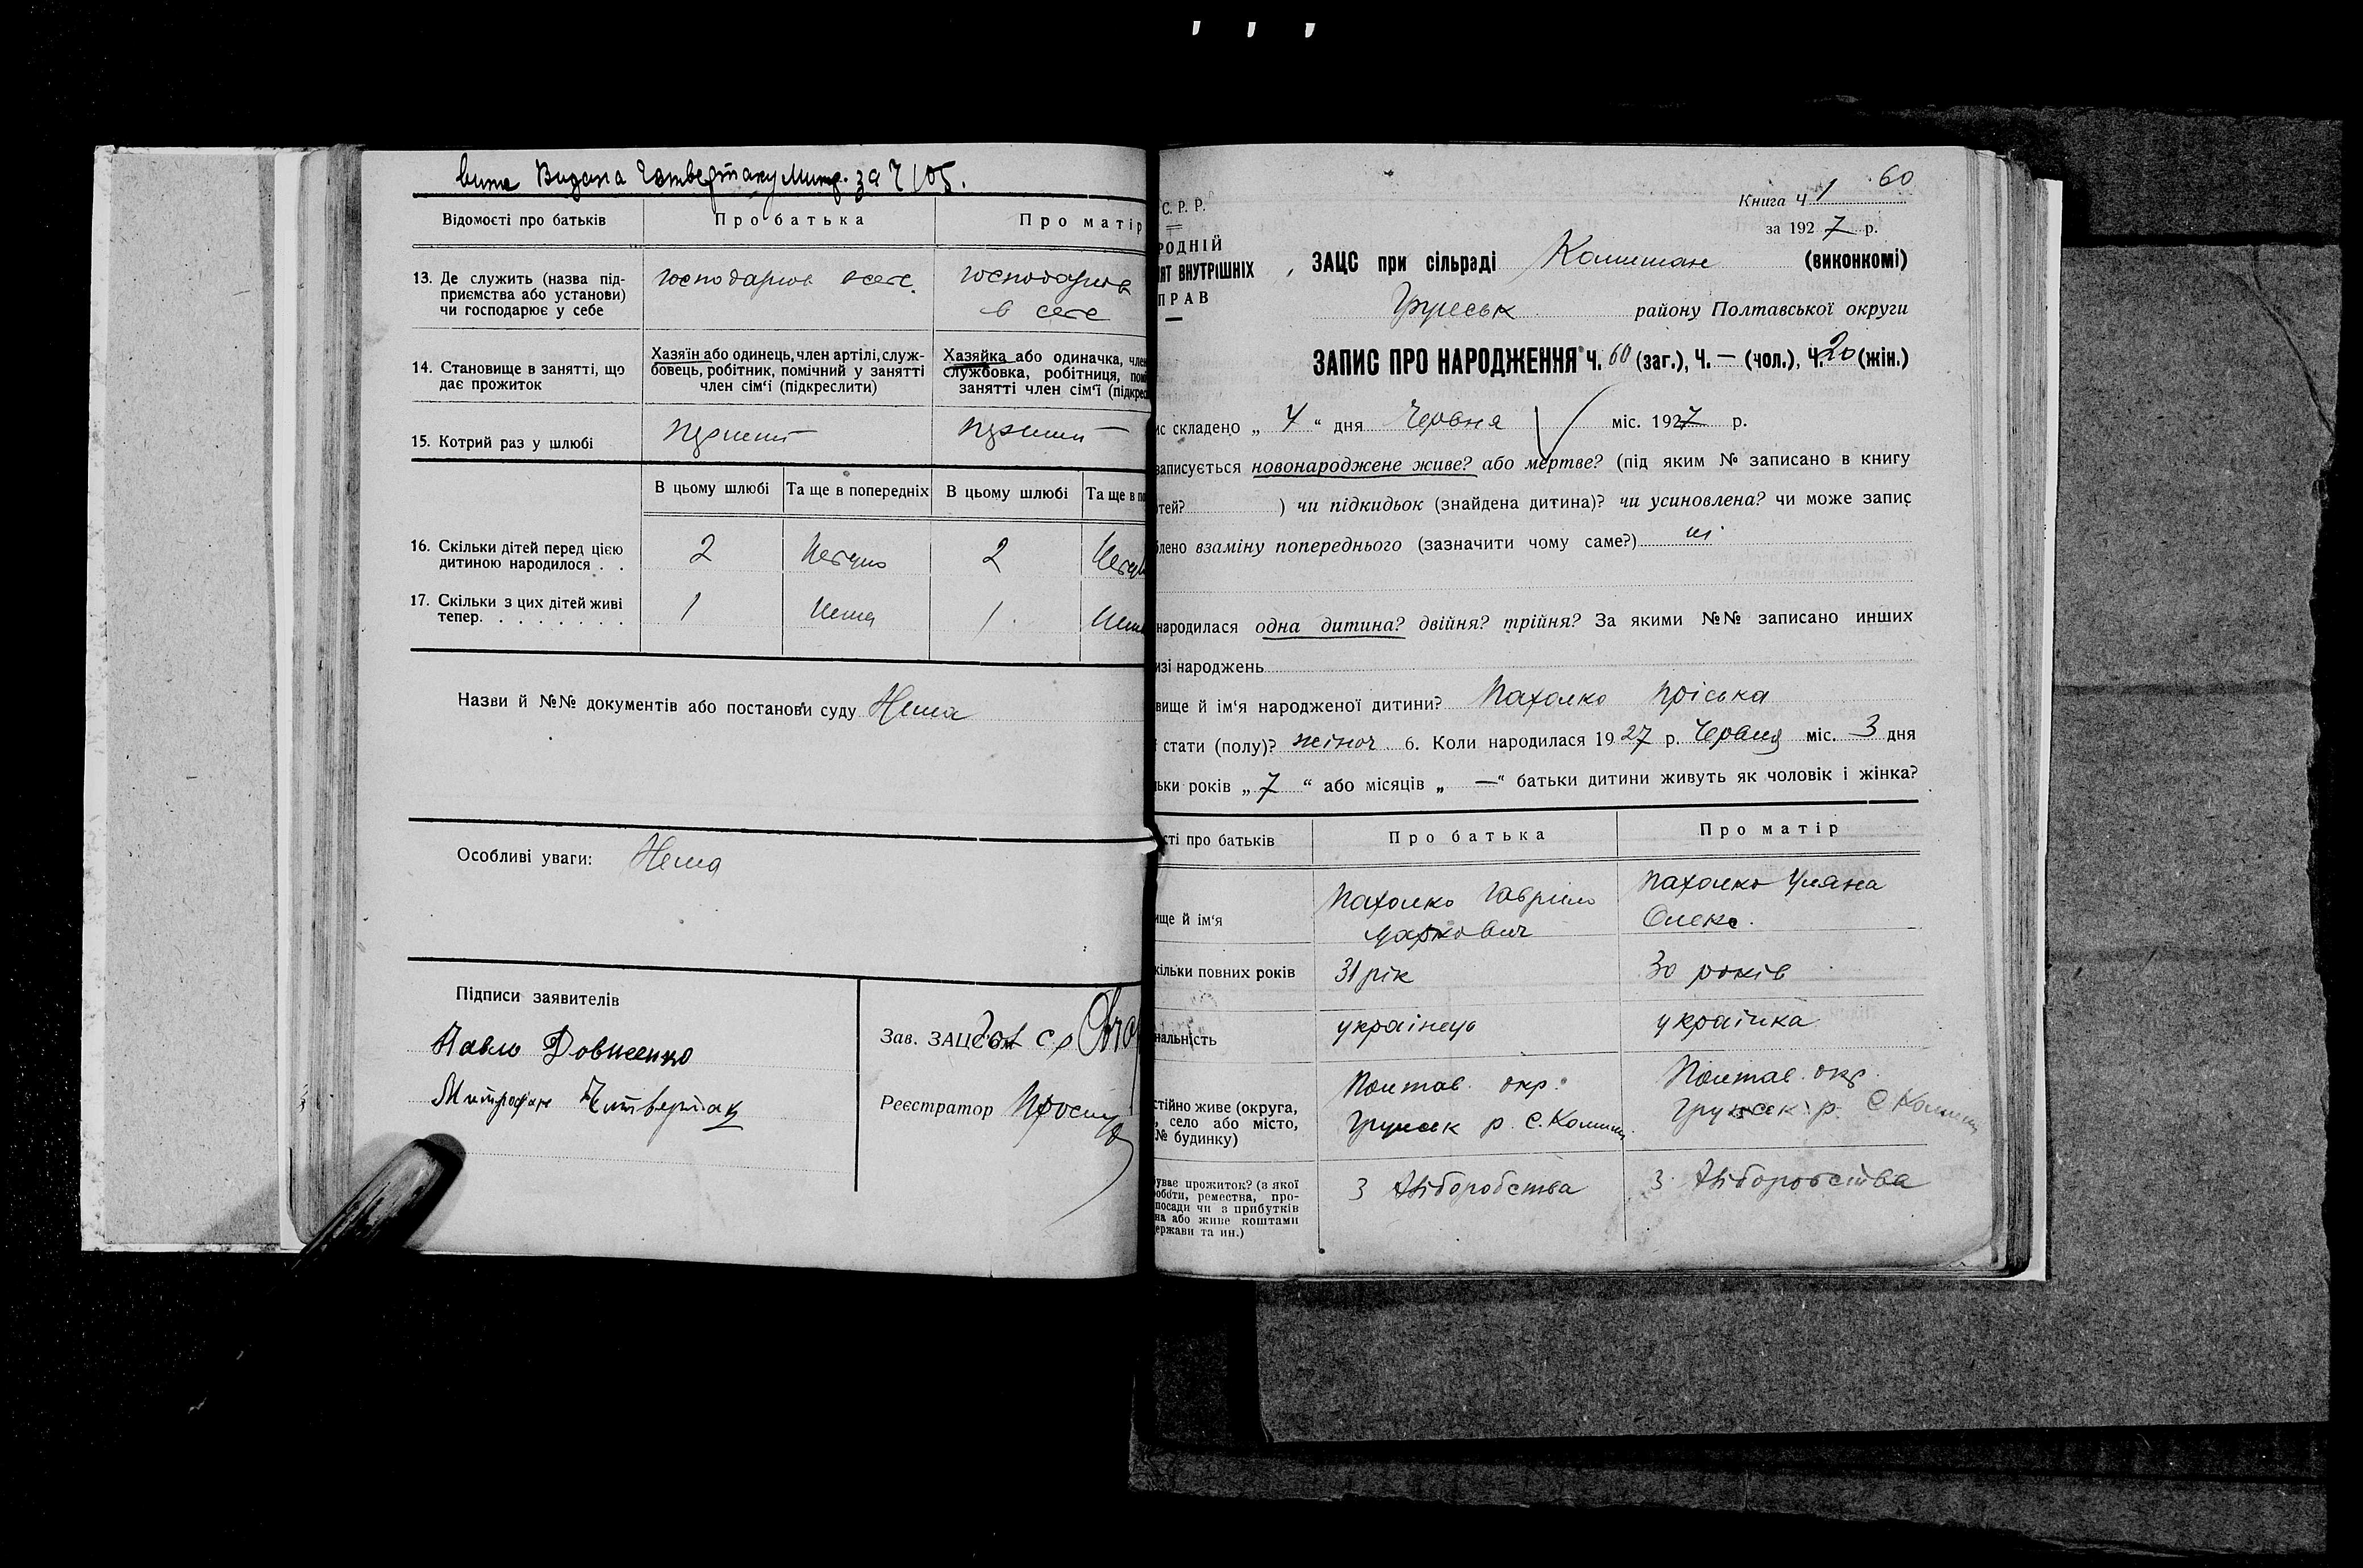 Видана Четвертаку Митр. за Ч 105.
Відомості про батьків
Про батька
Про матір
13. Де служить (назва під-
приємства або установи)
чи господарює у себе
господарює в себе
господарює
в себе
14. Становище в занятті, що
дає прожиток
Хазяїн або одинець, член артілі, служ-
бовець, робітник, помічний у занятті
член сім'ї (підкреслити)
Хазяйка або одиначка, член
службовка, робітниця, помі
занятті член сім'ї (підкрес
15. Котрий раз у шлюбі
В цьому шлюбі
Та ще в попередніх
В цьому шлюбі
Та ще в по
16. Скільки дітей перед цією
дитиною народилося . .
2
Небуло
2
17. Скільки з цих дітей живі
тепер. . . . . . . .
1
Нема
1
Назви й №№ документів або постанови суду Нема
Особливі уваги: Нема
Підписи заявителів
Павло Довженко
Митрофан Читвертак
Зав. ЗАЦС'ом
Реєстратор
60
Книга Ч 1
за 1927 р.
С. Р. Р.
РОДНІЙ
ІЯТ ВНУТРІШНІХ
ПРАВ
ЗАЦС при сільраді (виконкомі)
Грунськ району Полтавської округи
ЗАПИС ПРО НАРОДЖЕННЯ Ч. 60 (заг.), Ч. — (чол.), Ч. 20 (жін.)
ис складено „ 4 “ дня Червня міс. 1927 р.
записується новонароджене живе? або мертве? (під яким № записано в книгу
тей? ) чи підкидьок (знайдена дитина)? чи усиновлена? чи може запис
блено взаміну попереднього (зазначити чому саме?) ні
народилася одна дитина? двійня? трійня? За якими №№ записано инших
изі народжень
вище й ім'я народженої дитини? Пахолко Пріська
стати (полу)? жіноч 6. Коли народилася 1927 р. Червня міс. 3 дня
льки років „ 7 “ або місяців „ — “ батьки дитини живуть як чоловік і жінка?
сті про батьків
Про батька
Про матір
ище й ім'я
Пахолко Гаврило
Маркович
Пахолко Уляна
Олекс.
кільки повних років
31 рік
30 років
нальність
українець
українка
стійно живе (округа,
, село або місто,
№ будинку)
Полтав. окр.
Грунськ р. с. Комиш.
Полтав. окр.
Грунськ р. с. Комиш
уває прожиток? (з якої
оботи, ремества, про-
посади чи з прибутків
на або живе коштами
ержави та ин.)
З хліборобства
З хліборобства